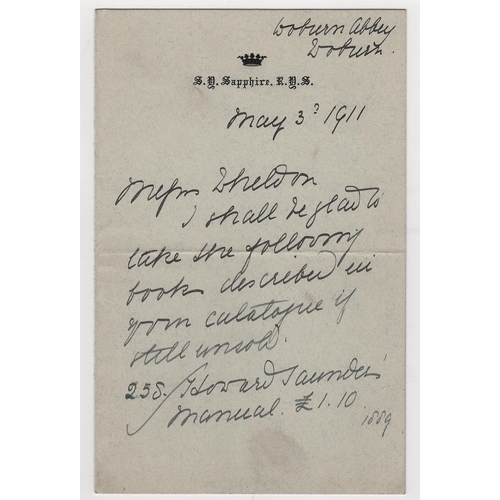 Woburn Abbey
Woburn.
S.Y. Sapphire. R.Y.S.
May 3d 1911
Messrs Sheldon
I shall be glad to
take the following
book described in
your catalogue if
still unsold.
258. Howard Saunders'
Manual. £1.10
1889